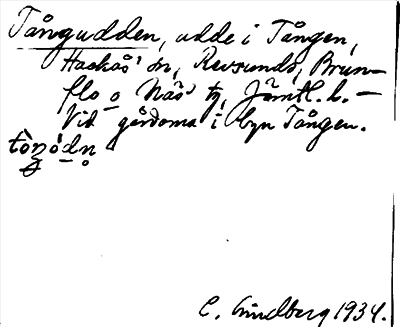 Tångudden, udde i Tången,
Hackås sn, Revsunds, Brun-
flo o Näs tg, Jämtl. l. —
Vid gårdarna i byn Tången.
C. Lindberg 1934.